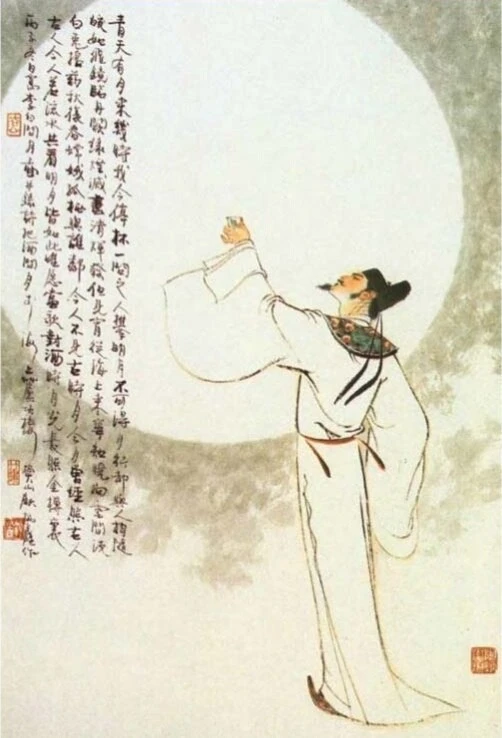 青天有月來幾時我今停杯一問之人攀明月不可得月行卻與人相隨
皎如飛鏡臨丹闕綠煙滅盡清輝發但見宵從海上來寧知曉向雲間沒
白兔搗藥秋復春嫦娥孤棲與誰鄰今人不見古時月今月曾經照古人
古人今人若流水共看明月皆如此惟愿當歌對酒時月光長照金樽裏
丙子冬日寫李白問月圖並錄詩把酒問月於海上